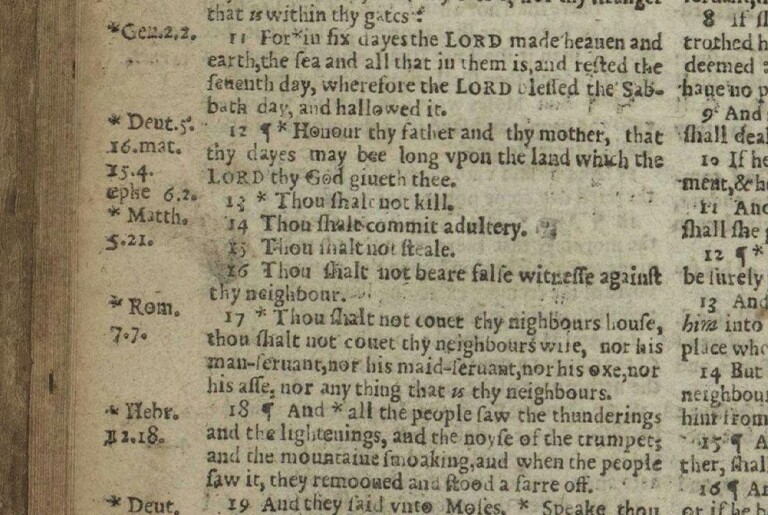 that is within thy gates:
*Gen.2.2.
11 For*in ſix dayes the LORD made heauen and
earth,the ſea and all that in them is,and reſted the
ſeuenth day, wherefore the LORD bleſſed the Sab-
bath day, and hallowed it.
* Deut.5.
16.mat.
15.4.
ephe 6.2.
12 ¶ * Honour thy father and thy mother, that
thy dayes may bee long vpon the land which the
LORD thy God giueth thee.
* Matth.
5.21.
13 * Thou ſhalt not kill.
14 Thou ſhalt commit adultery.
15 Thou ſhalt not ſteale.
16 Thou ſhalt not beare falſe witneſſe againſt
thy neighbour.
* Rom.
7.7.
17 * Thou ſhalt not couet thy nighbours houſe,
thou ſhalt not couet thy neighbours wife, nor his
man-ſeruant,nor his maid-ſeruant,nor his oxe,nor
his aſſe, nor any thing that is thy neighbours.
* Hebr.
12.18.
18 ¶ And * all the people ſaw the thunderings
and the lightenings, and the noyſe of the trumpet,
and the mountaine ſmoaking,and when the people
ſaw it, they remooued and ſtood a farre off.
* Deut.
19 And they ſaid vnto Moſes, * Speake thou
8 If
trothed
deemed
haue no
9 And
ſhall
10 If he
ment,&
11 And
ſhall ſhe
12 ¶ *
be ſurely
13 And
him into
place
14 But
neighbour
him from
15 ¶
ther,
16 ¶
or if he